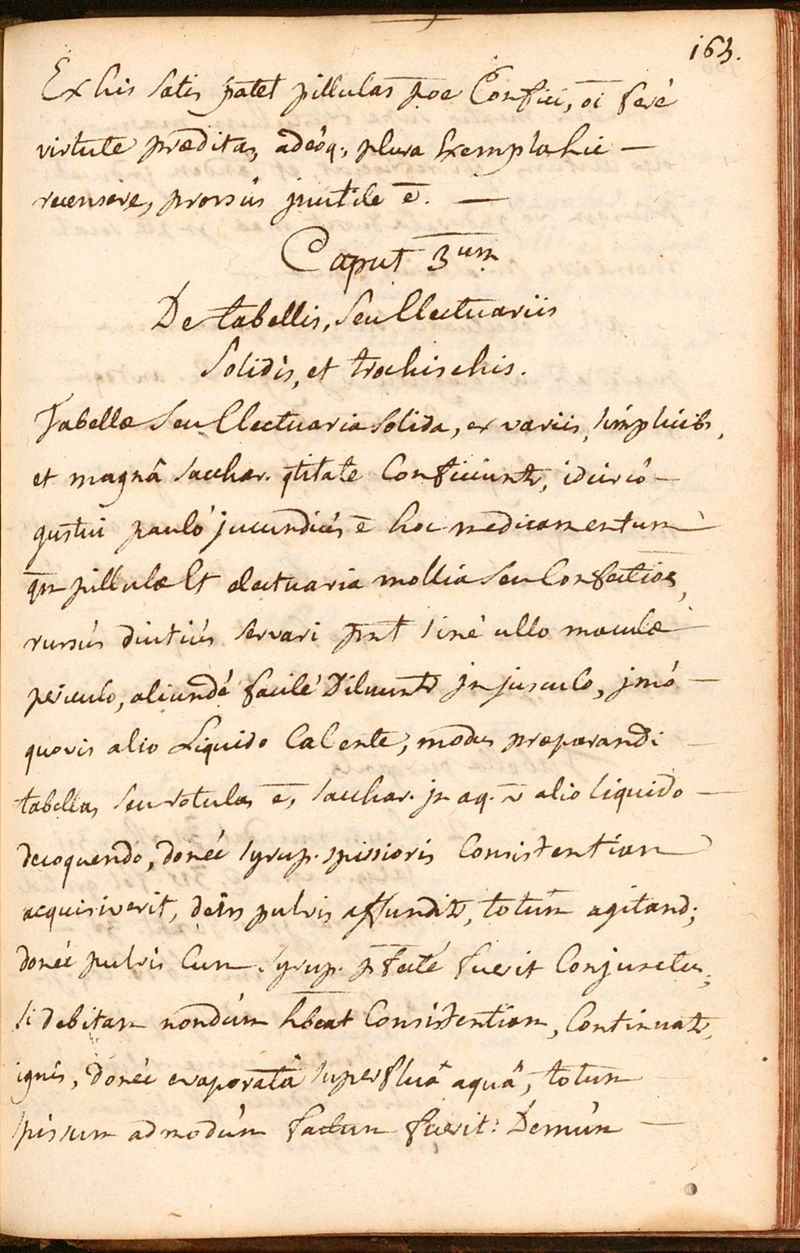 163.
Ex his satis patet pillulas p̄oe Confici, oī feré
virtute præditas, adeóq; plura Exempla hic —
recensere, prorsús jnutile ē. —
Caput 3um
De tabellis, Seu Electuariis
Solidis, et trochischis.
Tabellæ Seu Electuaria Solida, ex variis, simplicib,
et magnâ sacchar. q̄titate Conficiunt, idcircó —
gustui pauló jucundiús ē hoc medicamentum
q̄m pillulæ Et electuaria mollia Seu Confectiões,
rursús diutiús servari p̄nt siné ullo maculæ
periculo, aliundé facilé Diluunt jn jusculo, jmó —
quovis alio Liquido Calente; modus præparandi —
tabellas, seu rotulas ē, sacchar. jn aq. alio liquido —
decoquendo, donéc syrup. spissioris Consistentiam
acquisiverit, dein pulvis affundit, totum agitand;
donéc pulvis Cum Syrup. p̄fecté fuerit Conjunctus;
si debitam nondúm hbeat Consistentiam, Continuat,
ignis, donéc evaporatâ superfluâ aquâ, totum —
spissum admodúm factum fuerit: Demúm —